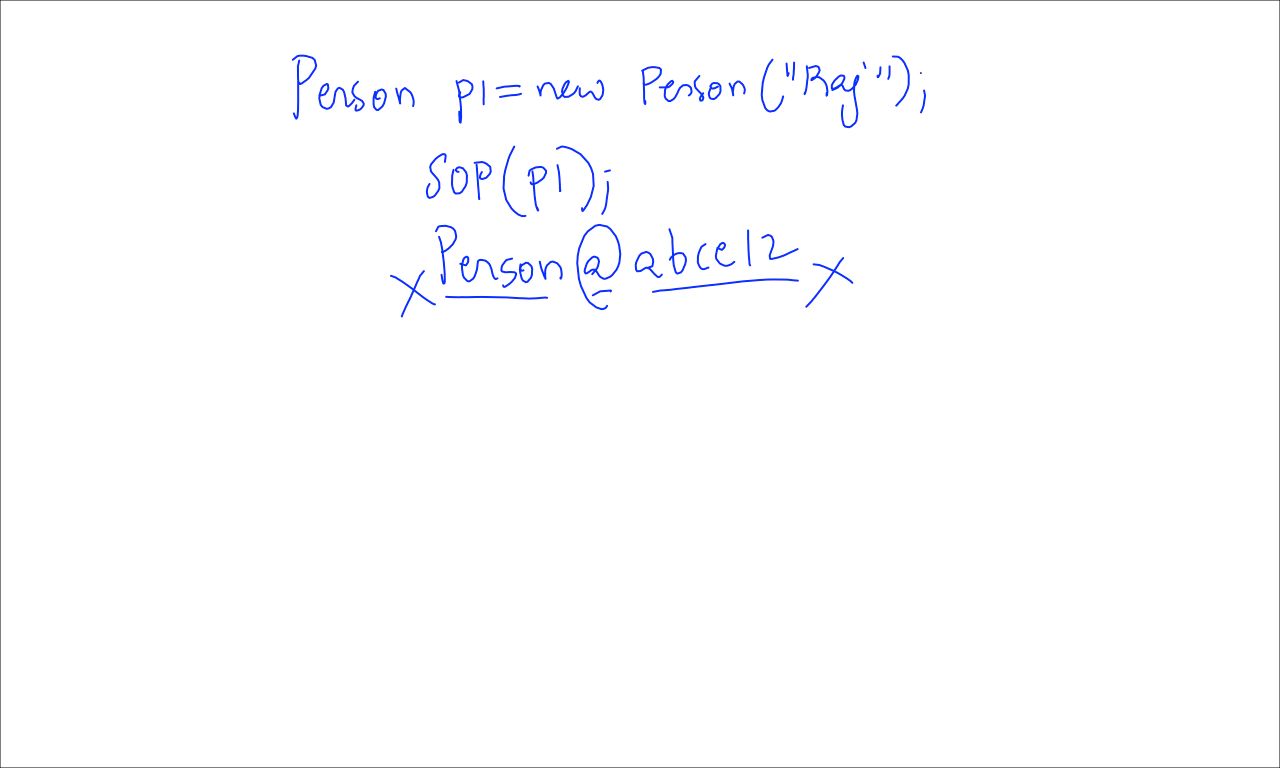 Person p1 = new Person("Raj");
SOP(p1);
X Person@abce12 X